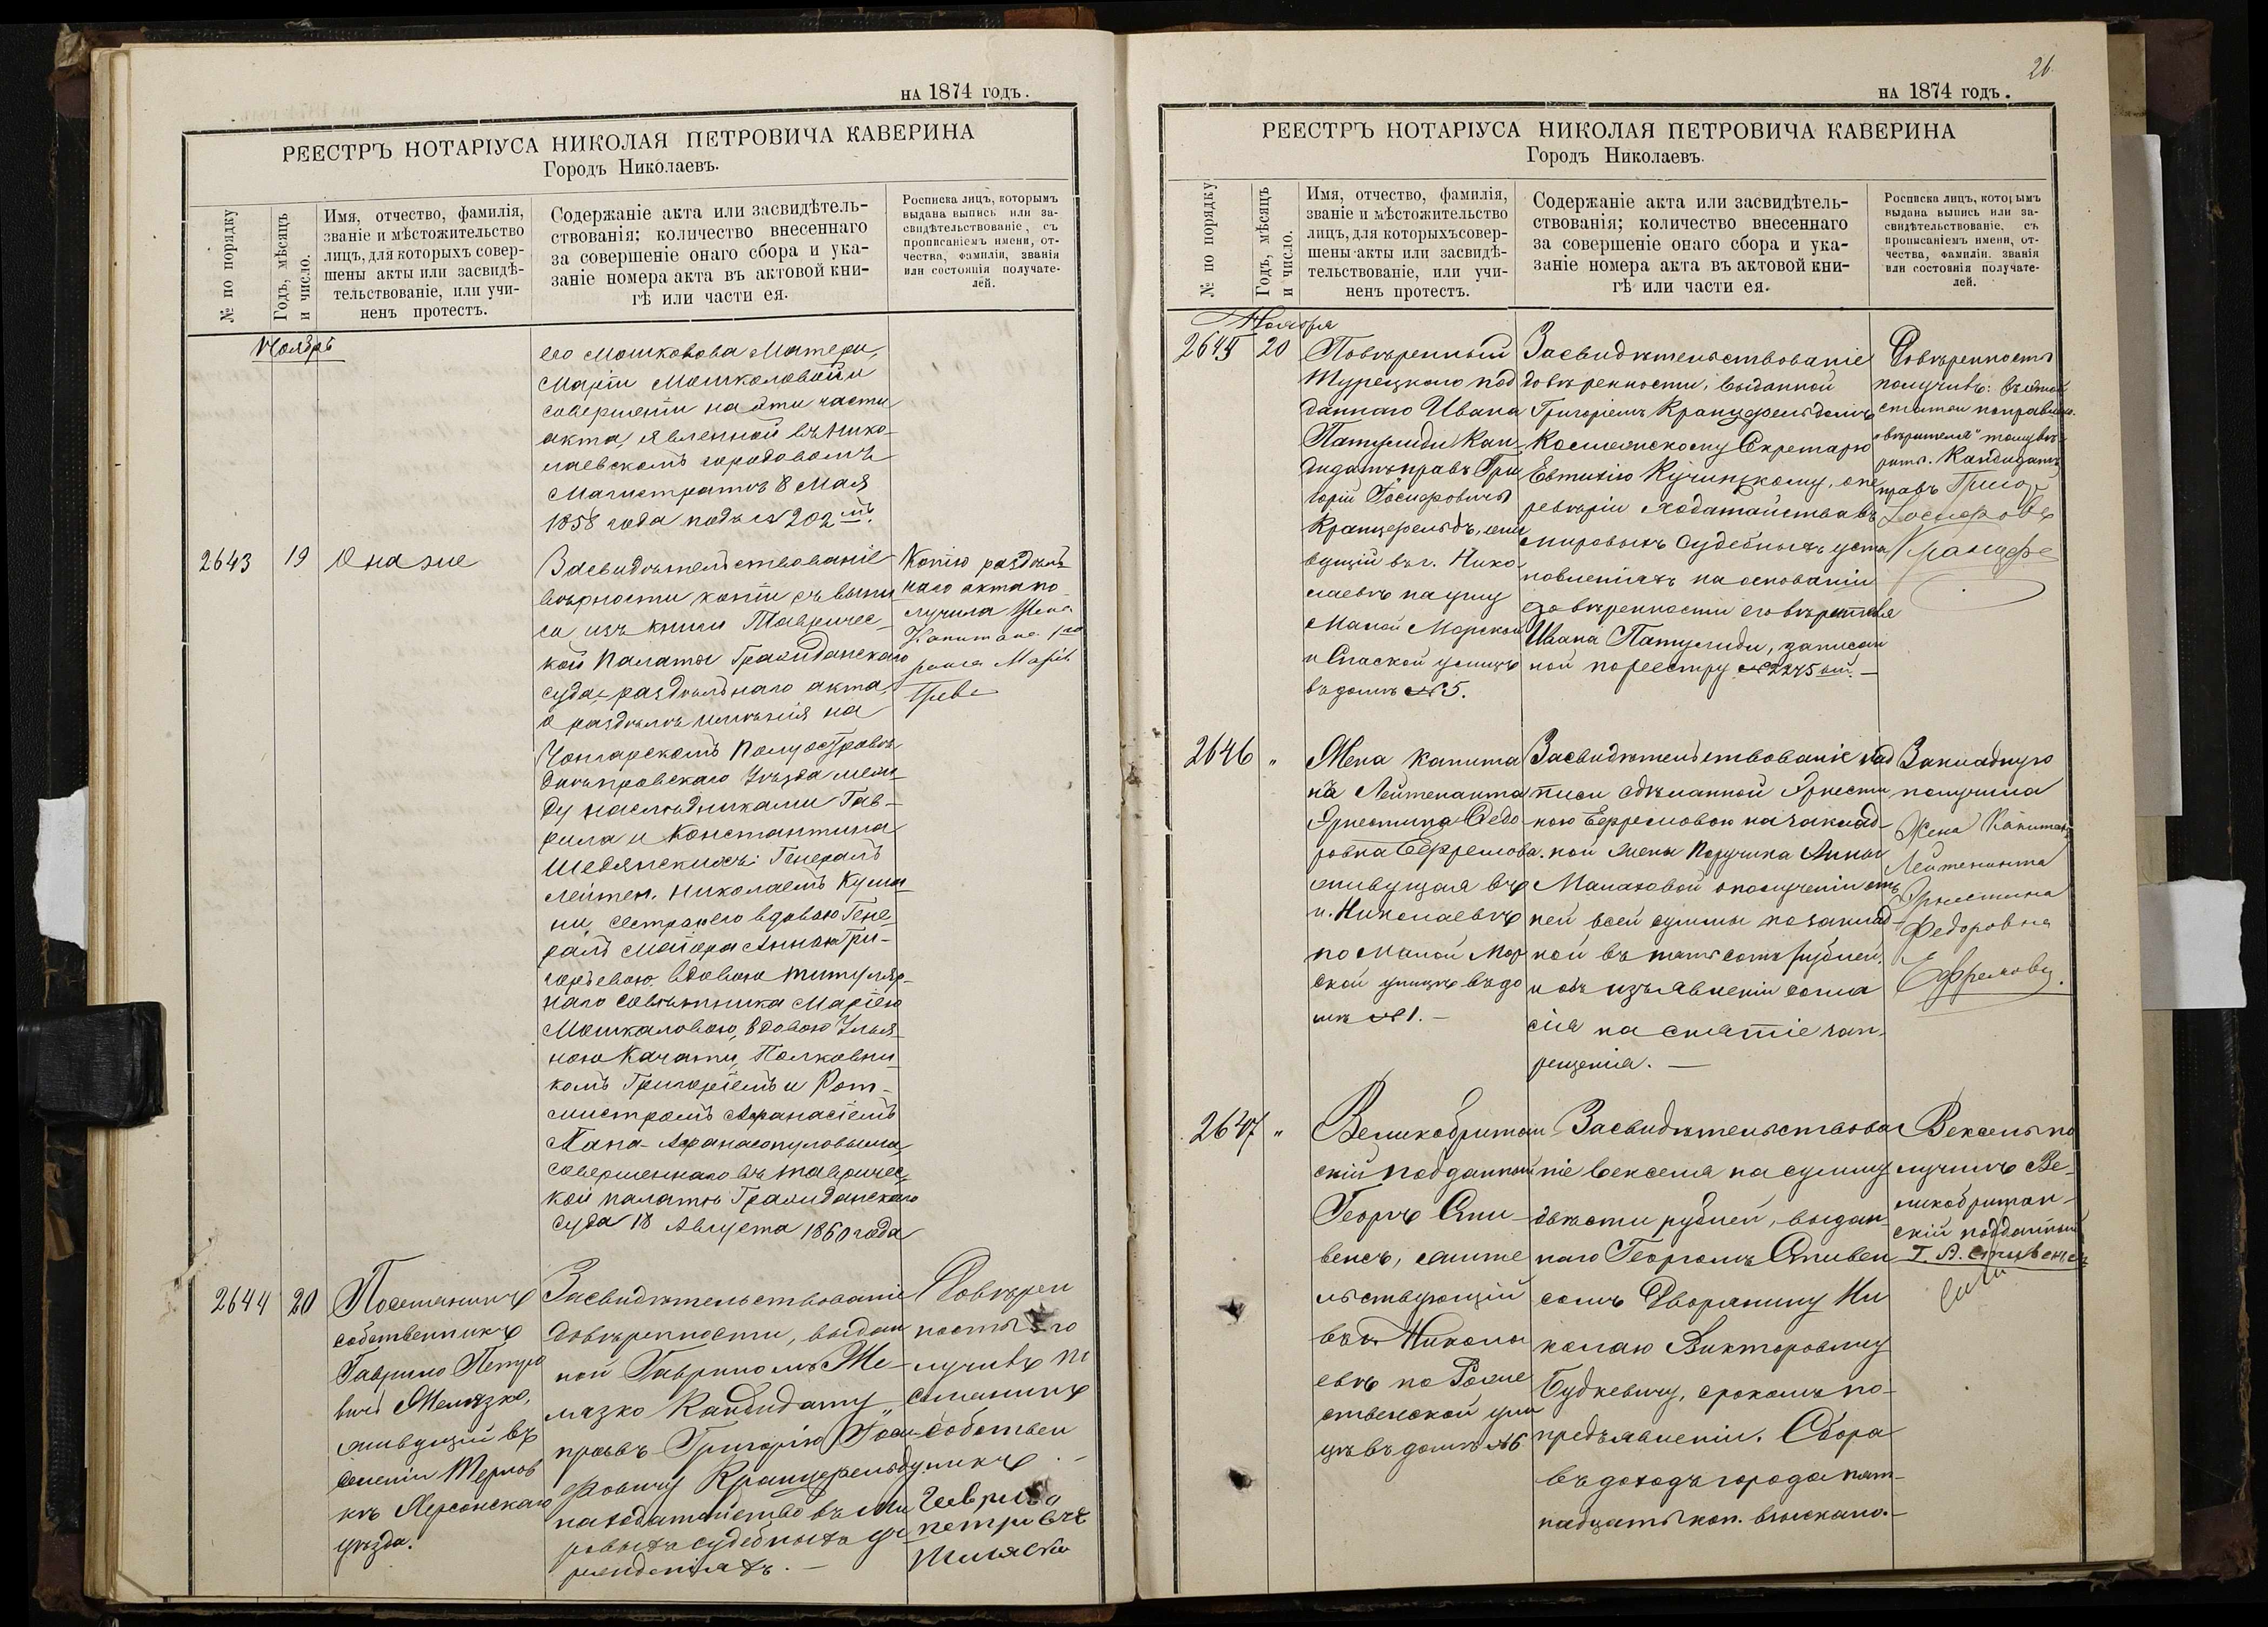 на 1874 годъ.
РЕЕСТРЪ НОТАРІУСА НИКОЛАЯ ПЕТРОВИЧА КАВЕРИНА
Городъ Николаевъ.
№ по порядку
Годъ, мѣсяцъ
и число.
Имя, отчество, фамилія,
званіе и мѣстожительство
лицъ, для которыхъ совер-
шены акты или засвидѣ-
тельствованіе, или учи-
ненъ протестъ.
Содержаніе акта или засвидѣтель-
ствованія; количество внесеннаго
за совершеніе онаго сбора и ука-
заніе номера акта въ актовой кни-
гѣ или части ея.
Росписка лицъ, которымъ
выдана выпись или за-
свидѣтельствованіе, съ
прописаніемъ имени, от-
чества, фамиліи, званія
или состоянія получате-
лей.
Ноябрь
его Мошковова Матери,
Маріи Мошкаловой и
совершеніи на эти части
акта, явленной въ Нико-
лаевскомъ городовомъ
Магистратѣ 8 Мая
1858 года подъ № 202мъ.
2643
19
Она же
Засвидѣтельствованіе
вѣрности копіи съ выпи
си изъ книги Тавричес-
кой Палаты Гражданскаго
суда, раздѣльнаго акта,
о раздѣлѣ имѣнія на
Чонгарскомъ Полуостровѣ
Днѣпровскаго Уѣзда меж-
ду наслѣдниками Гав-
рила и Константина
Генералъ
Лейтен. Николаемъ Кума
ни, сестрою его вдовою Гене
ралъ Маіора Анною Гри-
горьевою, вдовою титуляр-
наго Совѣтника Маріею
Мошкаловою, вдовою Улья-
ною Качати, Полковни
комъ Григоріемъ и Рот-
мистромъ Афанасіемъ
Папа-Афанасопуловыми,
совершеннаго въ Тавричес-
кой палатѣ Гражданскаго
суда 18 Августа 1860 года
Копію раздѣль
наго акта по
лучила Жена
Капитана 1го
ранга Марія
2644
20
Поселянинъ
собственникъ
Гаврило Петро
вичъ Желязко,
живущій въ
селеніи Терлов
кѣ Херсонскаго
уѣзда.
Засвидѣтельствованіе
довѣренности, выдан
ной Гавриломъ Же-
лязко Кандидату
правъ Григорію Іоси
фовичу Кранцфельду
на ходатайство въ Ми
ровыхъ судебныхъ уч
режденіяхъ. —
Довѣрен
ность по
лучивъ По
селянинъ
Собствен
никъ
Гаврило
петровичъ
на 1874 годъ.
26.
РЕЕСТРЪ НОТАРІУСА НИКОЛАЯ ПЕТРОВИЧА КАВЕРИНА
Городъ Николаевъ.
№ по порядку
Годъ, мѣсяцъ
и число.
Имя, отчество, фамилія,
званіе и мѣстожительство
лицъ, для которыхъ совер-
шены акты или засвидѣ-
тельствованіе, или учи-
ненъ протестъ.
Содержаніе акта или засвидѣтель-
ствованія; количество внесеннаго
за совершеніе онаго сбора и ука-
заніе номера акта въ актовой кни-
гѣ или части ея.
Росписка лицъ, которымъ
выдана выпись или за-
свидѣтельствованіе, съ
прописаніемъ имени, от-
чества, фамиліи, званія
или состоянія получате-
лей.
Ноября
2645
20
Повѣренный
Турецкаго под
даннаго Ивана
Патулиди Кан
дидатъ правъ Гри
горій Іосифовичъ
Кранцфельдъ, жи
вущій въ г. Нико
лаевѣ на углу
Малой Морской
и Спаской улицъ
въ домѣ № 5.
Засвидѣтельствованіе
довѣренности, выданной
Григоріемъ Кранцфельдомъ
Коллежскому Секретарю
Евтихію Кучинскому, о пе
редовѣріи ходатайства въ
мировыхъ судебныхъ уста
новленіяхъ на основаніи
довѣренности его вѣрителя
Ивана Патулиди, записан
ной по реестру № 2245ый. —
Довѣренность
получивъ: въ этой
статьи поправлено.
вѣрителя" тому вѣ-
рить. Кандидатъ
правъ Григор
Іосифовъ
Кранцфе
2646
"
Жена Капита
на Лейтенанта
Эрнестина Федо
ровна Ефремова.
живущая въ
г. Николаевѣ
по Малой Мор
ской улицѣ въ до
мѣ № 1. —
Засвидѣтельствованіе над
писи сдѣланной Эрнести
ною Ефремовою на заклад-
ной жены Поручика Анны
Малаховой о полученіи отъ
ней всей суммы по заклад-
ной въ пять сотъ рублей,
и объ изъявленіи согла
сія на снятіе зап-
рещенія. —
Закладную
получила
Жена Капитан
Лейтенанта
Эрнестина
Федоровна
Ефремова.
2647
"
Великобритан
скій подданный
Георгъ Сти-
венсъ, житель
ствующій
въ г. Никола
евѣ по Рожде
ственской ули
цѣ въ домѣ № 6
Засвидѣтельствова
ніе векселя на сумму
двѣсти рублей, выдан
наго Георгомъ Стивен
сомъ Дворянину Ни
колаю Викторовичу
Будкевичу, срокомъ по
предъявленіи. Сбора
въ доходъ города пят-
надцать коп. взыскано. —
Вексель по
лучилъ Ве-
ликобритан-
скій подданный
Г. А. Стивенсъ